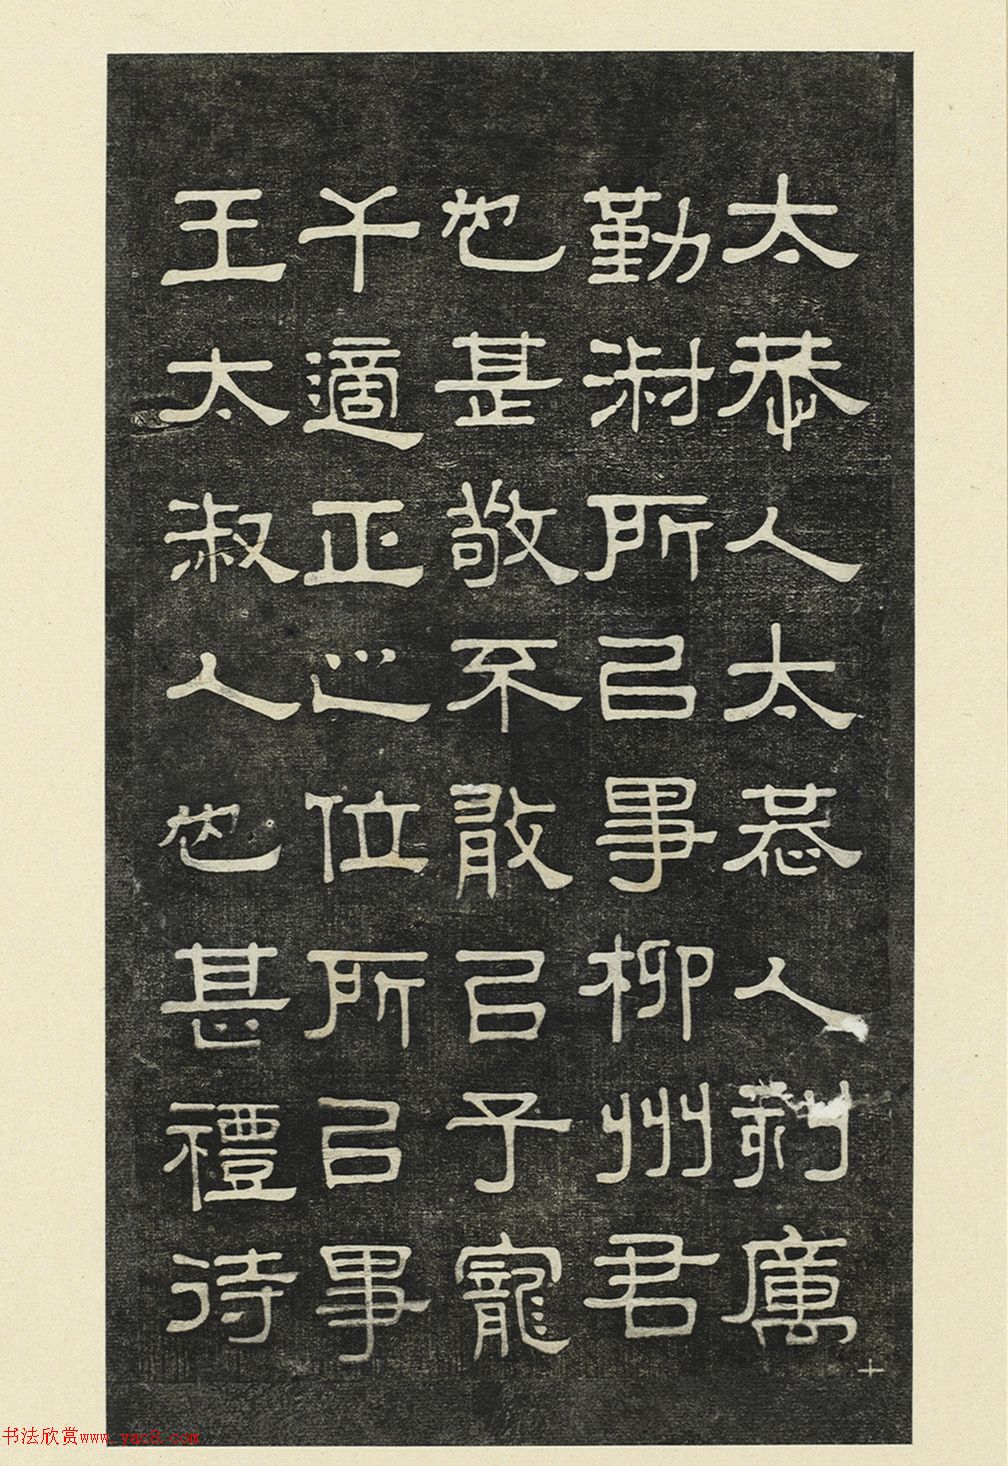 太恭人太恭人刻厲
勤淑所㠯事柳州君
也甚敬不敢㠯子寵
千適正之位所㠯事
王太淑人也甚禮待
十
书法欣赏www.yac8.com